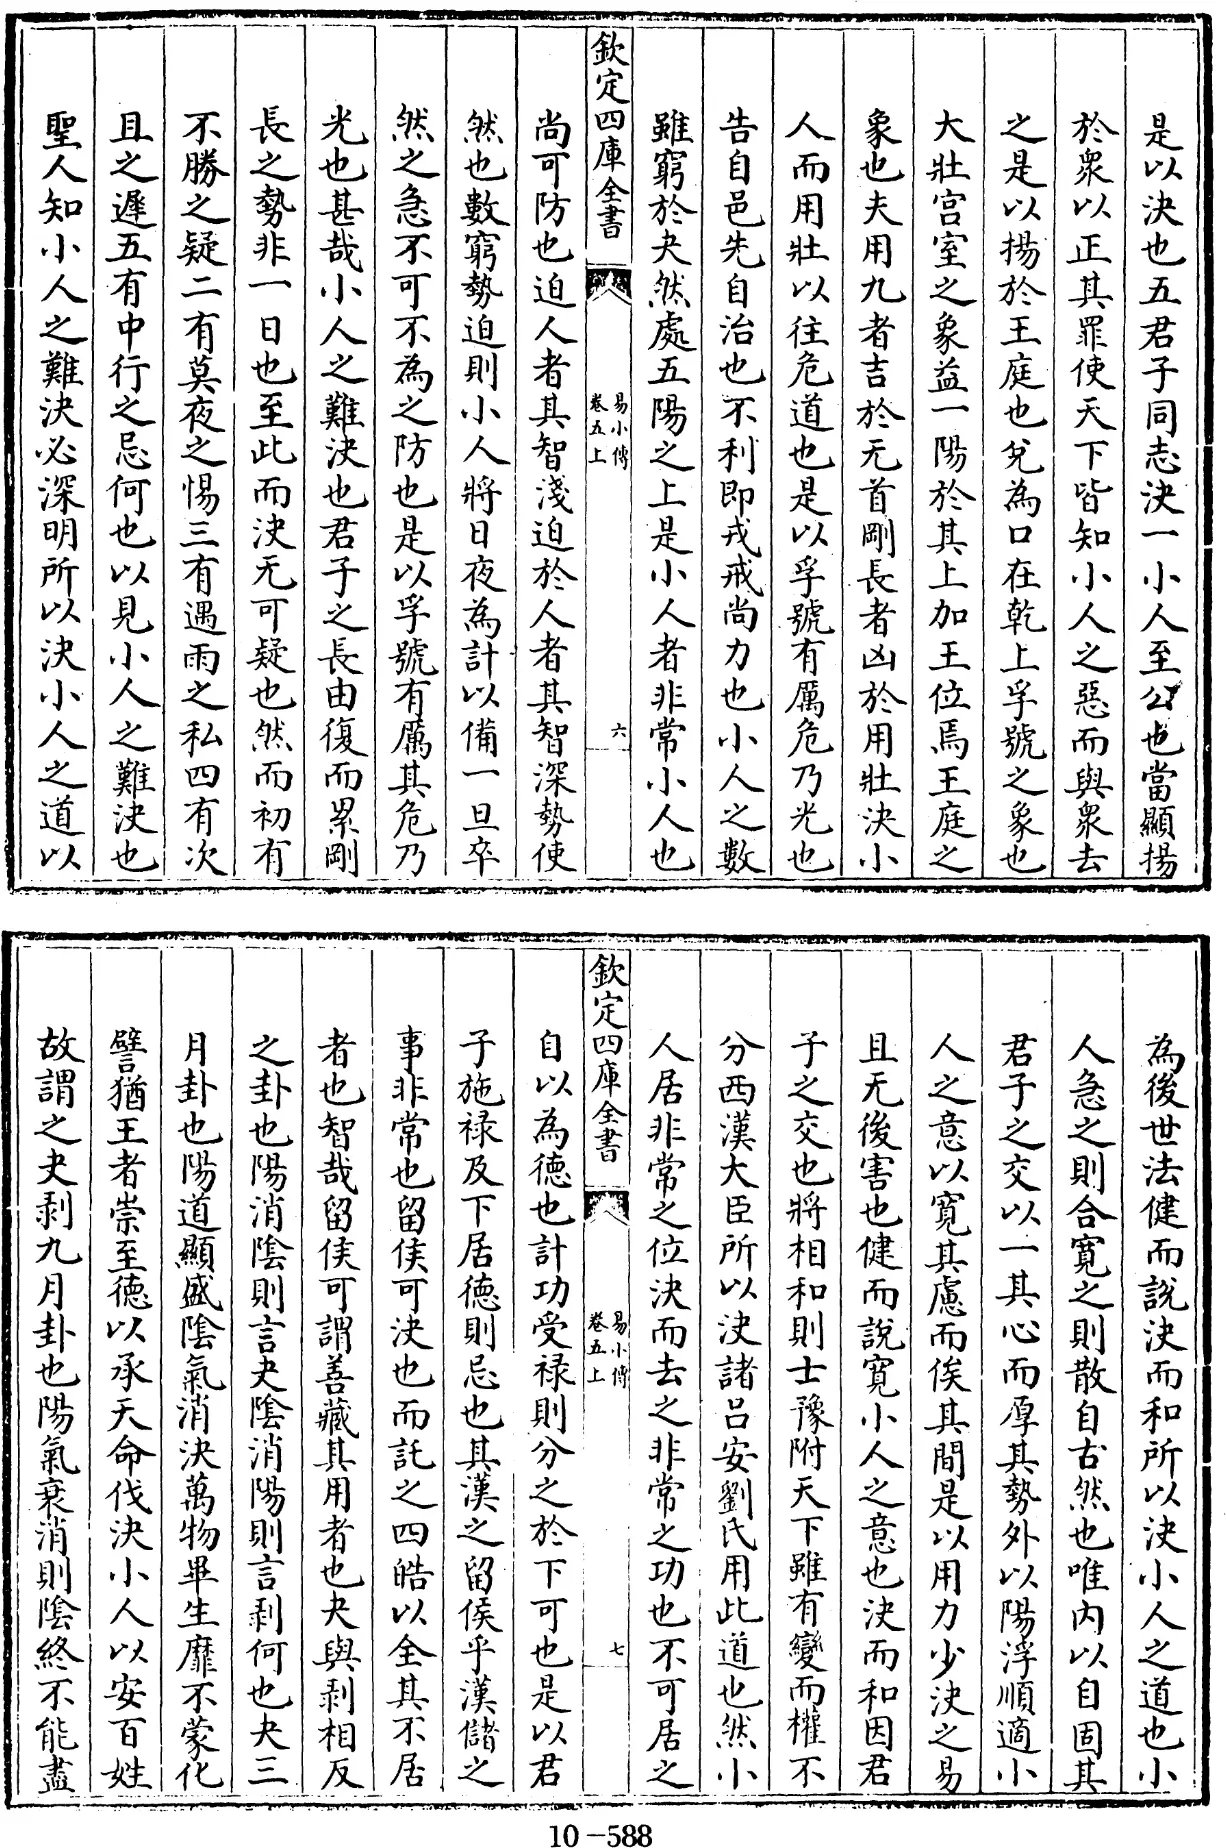 是以決也五君子同志決一小人至公也當顯揚
於衆以正其罪使天下皆知小人之惡而與衆去
之是以揚於王庭也兌為口在乾上孚號之象也
大壯宮室之象益一陽於其上加王位焉王庭之
象也夫用九者吉於无首剛長者凶於用壯決小
人而用壯以往危道也是以孚號有厲危乃光也
告自邑先自治也不利即戎戒尚力也小人之數
雖窮於夬然處五陽之上是小人者非常小人也
欽定四庫全書
易小傳
卷五上
六
尚可防也迫人者其智淺迫於人者其智深勢使
然也數窮勢迫則小人將日夜為計以備一旦卒
然之急不可不為之防也是以孚號有厲其危乃
光也甚哉小人之難決也君子之長由復而累剛
長之勢非一日也至此而決无可疑也然而初有
不勝之疑二有莫夜之惕三有遇雨之私四有次
且之遲五有中行之忌何也以見小人之難決也
聖人知小人之難決必深明所以決小人之道以
為後世法健而說決而和所以決小人之道也小
人急之則合寬之則散自古然也唯內以自固其
君子之交以一其心而厚其勢外以陽浮順適小
人之意以寬其慮而俟其間是以用力少決之易
且无後害也健而說寬小人之意也決而和因君
子之交也將相和則士豫附天下雖有變而權不
分西漢大臣所以決諸呂安劉氏用此道也然小
人居非常之位決而去之非常之功也不可居之
欽定四庫全書
易小傳
卷五上
七
自以為德也計功受祿則分之於下可也是以君
子施祿及下居德則忌也其漢之留侯乎漢儲之
事非常也留侯可決也而託之四皓以全其不居
者也智哉留侯可謂善藏其用者也夬與剥相反
之卦也陽消陰則言夬陰消陽則言剥何也夬三
月卦也陽道顯盛陰氣消決萬物畢生靡不蒙化
譬猶王者崇至德以承天命伐決小人以安百姓
故謂之夬剥九月卦也陽氣衰消則陰終不能盡
10-588